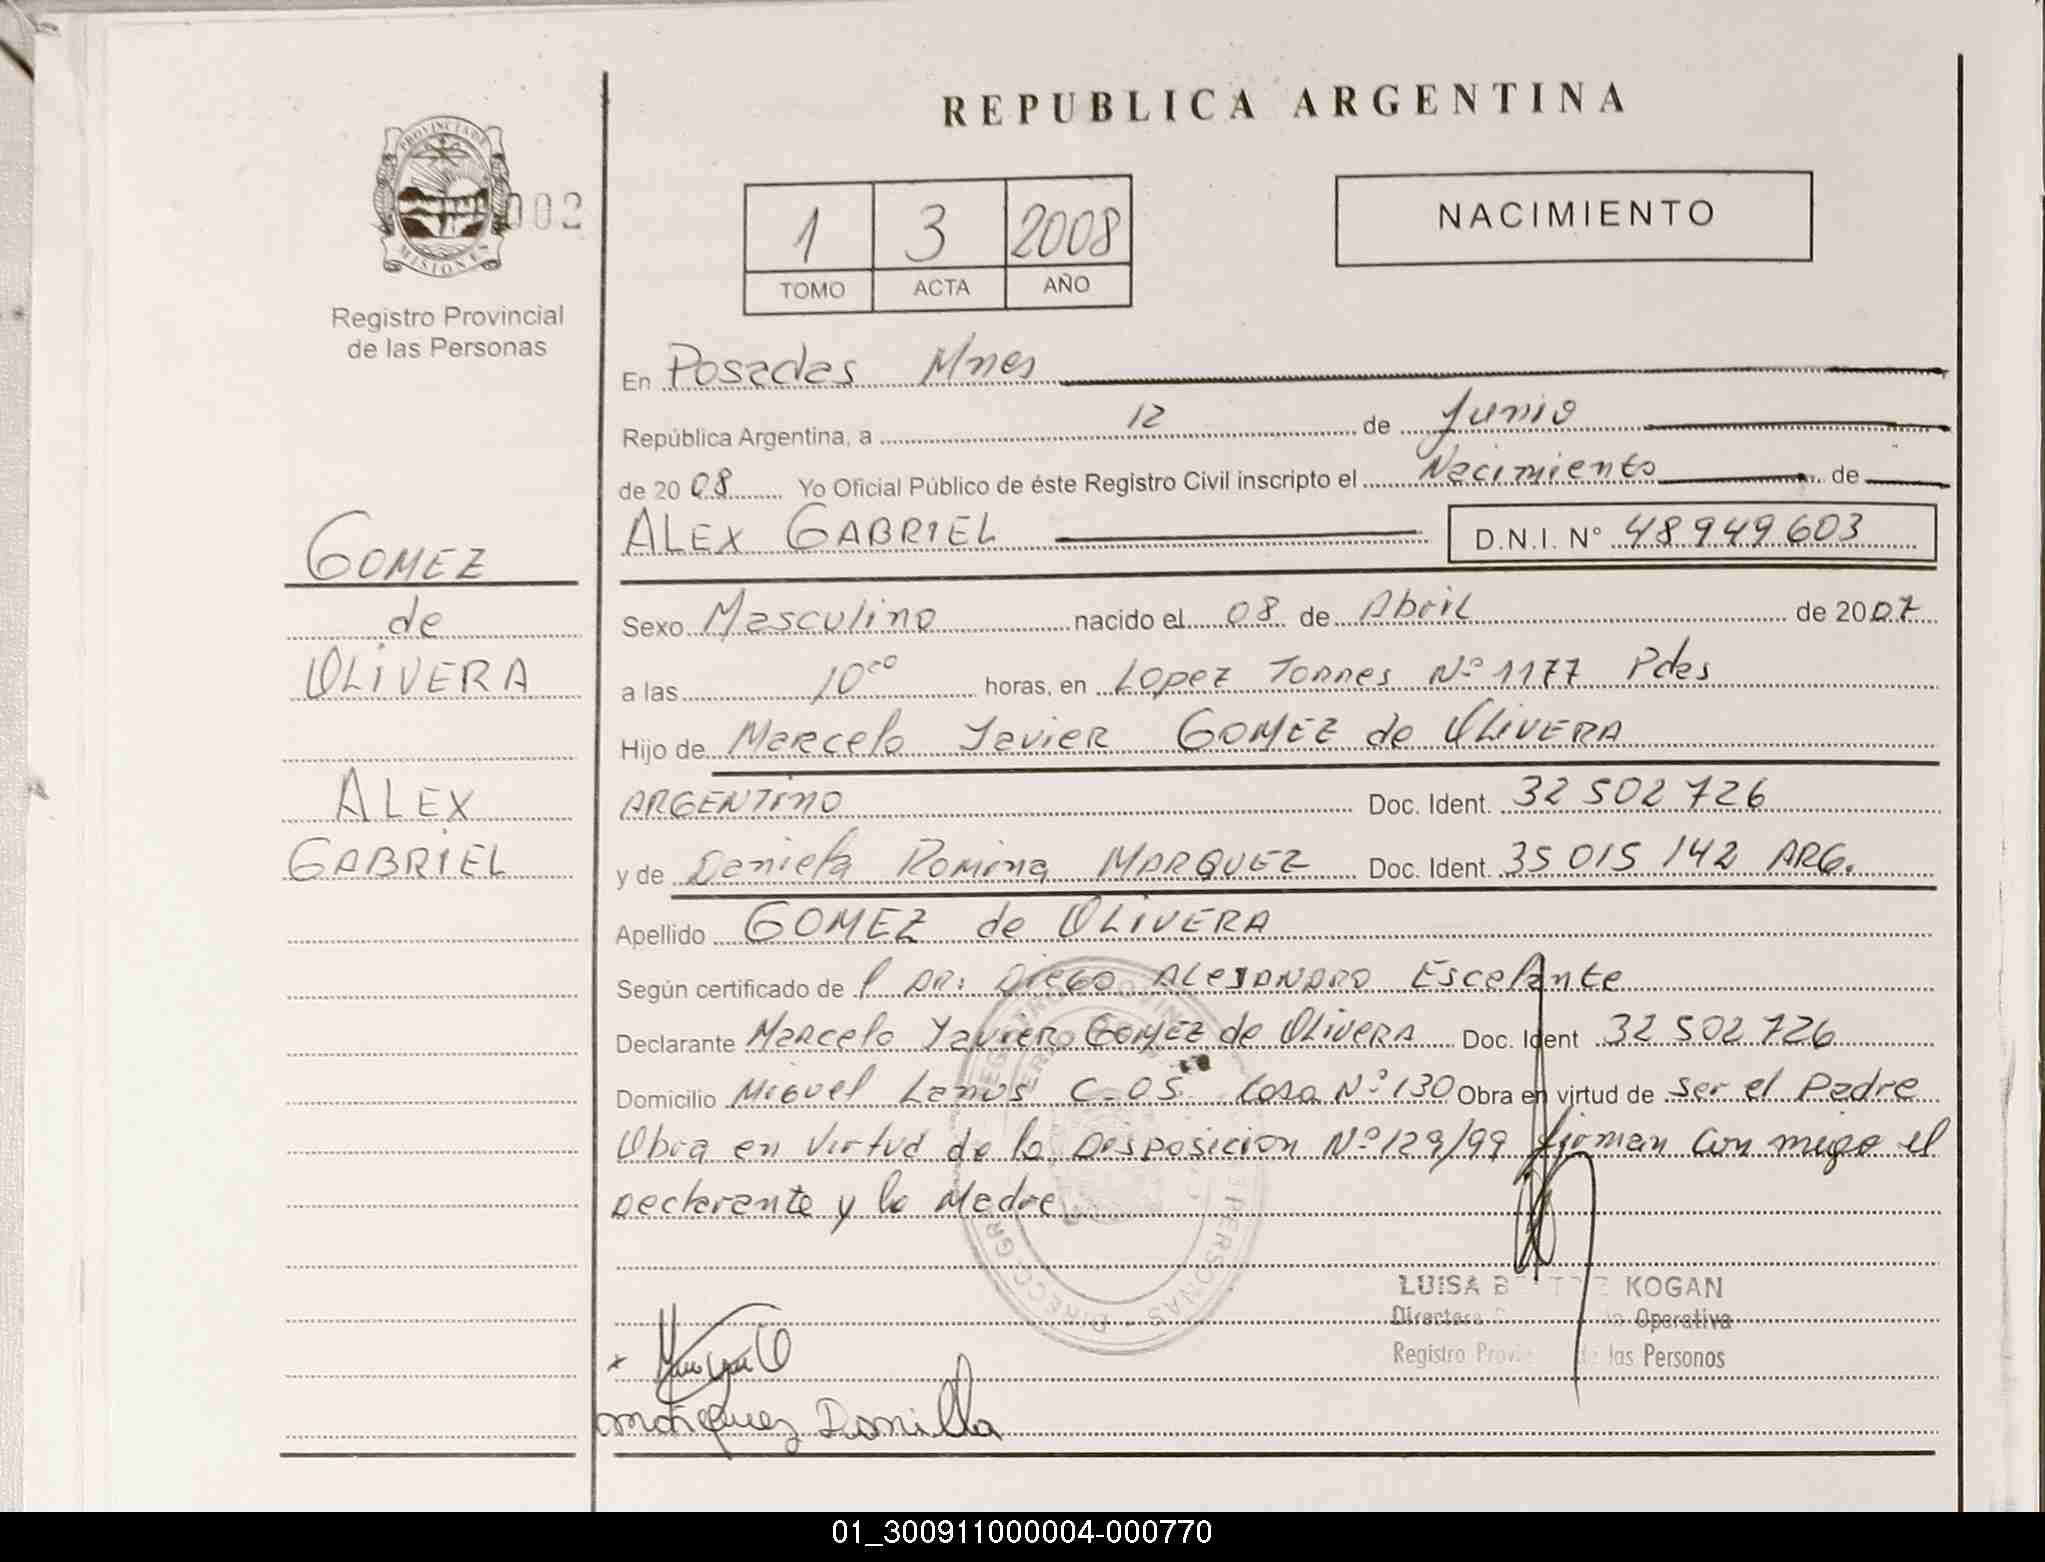 REPUBLICA ARGENTINA
PROVINCIA DE
MISIONES
002
Registro Provincial
de las Personas
1 3 2008
TOMO ACTA AÑO
NACIMIENTO
GOMEZ
de
OLIVERA
ALEX
GABRIEL
En Posadas Mnes
República Argentina, a 12 de Junio
de 2008 Yo Oficial Público de éste Registro Civil inscripto el Nacimiento de
ALEX GABRIEL D.N.I. N° 48949603
Sexo Masculino nacido el 08 de Abril de 2007
a las 10°° horas, en Lopez Torres N° 1177 Pdas
Hijo de Marcelo Javier GOMEZ de OLIVERA
ARGENTINO Doc. Ident. 32 502 726
y de Daniela Romina MARQUEZ Doc. Ident. 35 015 142 ARG.
Apellido GOMEZ de OLIVERA
Según certificado de l DR: Diego ALEJANDRO Escalante
Declarante Marcelo Javier GOMEZ de OLIVERA Doc. Ident 32 502 726
Domicilio Miguel Lanus C-05 Casa N° 130 Obra en virtud de ser el Padre
Obra en virtud de la Disposicion N° 129/99 firman con migo el
Declarante y la Madre
LUISA KOGAN
Directora Operativa
Registro de las Personas
Marquez Daniela
01_300911000004-000770